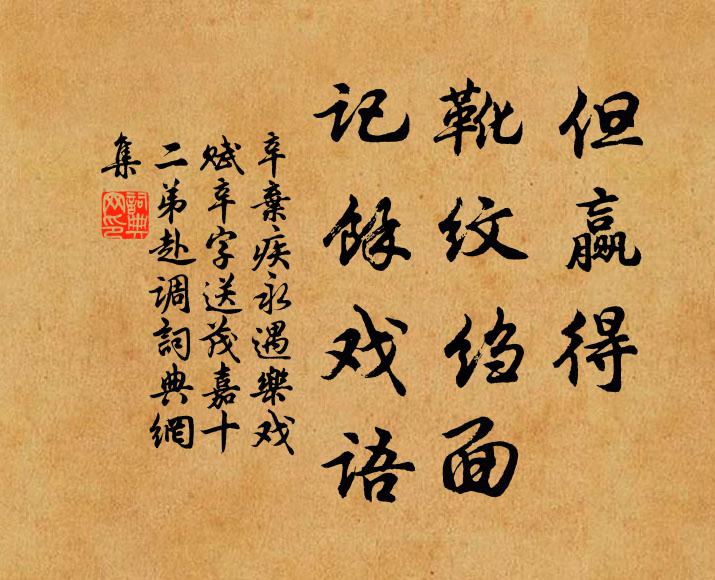 但赢得
靴纹绉面
记餘戏语
辛棄疾永遇樂戏
赋辛字送茂嘉十
二弟赴调詞典網
集
詞典網印